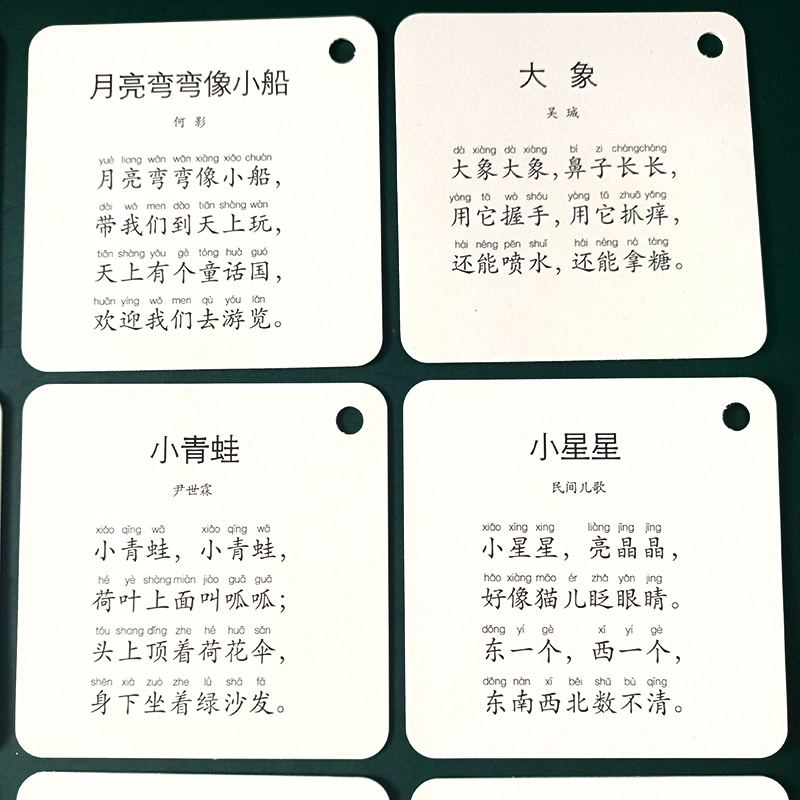 月亮弯弯像小船
何影
yuè liang wān wān xiàng xiǎo chuán
月亮弯弯像小船，
dài wǒ men dào tiān shàng wán
带我们到天上玩，
tiān shàng yǒu gè tóng huà guó
天上有个童话国，
huān yíng wǒ men qù yóu lǎn
欢迎我们去游览。
大象
吴珹
dà xiàng dà xiàng bí zi chángcháng
大象大象，鼻子长长，
yòng tā wò shǒu yòng tā zhuā yǎng
用它握手，用它抓痒，
hái néng pēn shuǐ hái néng ná táng
还能喷水，还能拿糖。
小青蛙
尹世霖
xiǎo qīng wā xiǎo qīng wā
小青蛙，小青蛙，
hé yè shàng miàn jiào guā guā
荷叶上面叫呱呱；
tóu shang dǐng zhe hé huā sǎn
头上顶着荷花伞，
shēn xià zuò zhe lǜ shā fā
身下坐着绿沙发。
小星星
民间儿歌
xiǎo xīng xing liàng jīng jīng
小星星，亮晶晶，
hǎo xiàng māo ér zhǎ yǎn jing
好像猫儿眨眼睛。
dōng yí gè xī yí gè
东一个，西一个，
dōng nán xī běi shǔ bù qīng
东南西北数不清。